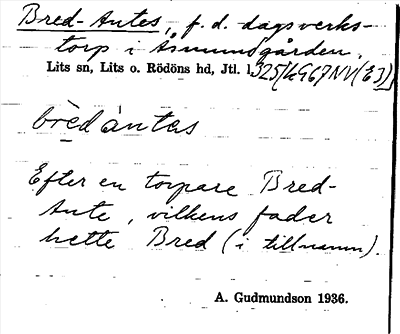 Bred-Antes, f.d. dagsverks-
torp i Åsmundgården.
Lits sn, Lits o. Rödöns hd, Jtl. l.325/4967NV(E3)
brèd àntas
Efter en torpare Bred-
Ante, vilkens fader
hette Bred (i tillnamn).
A. Gudmundson 1936.